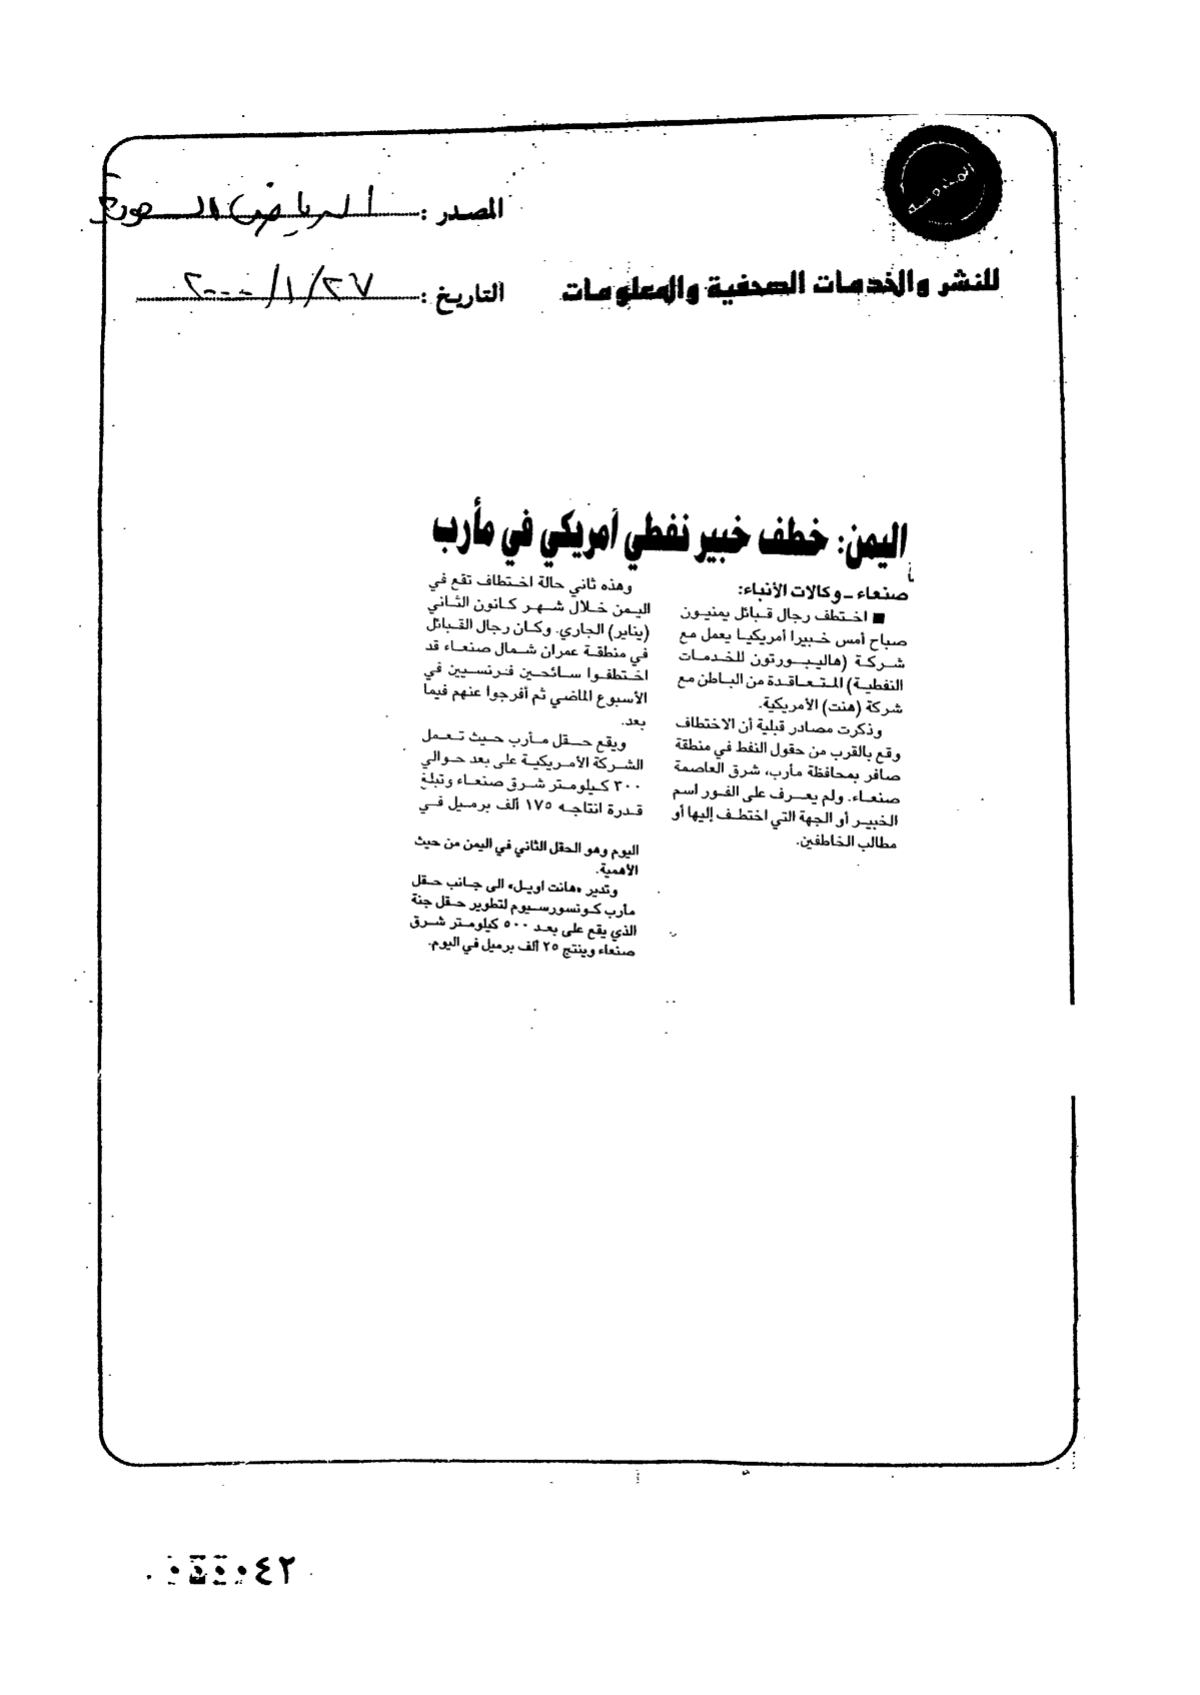 المصدر : الرياض السعودية
للنشر والخدمات الصحفية والمعلومات
التاريخ : ٢٧/١/٢٠٠٠
اليمن: خطف خبير نفطي أمريكي في مأرب
صنعاء - وكالات الأنباء:
■ اختطف رجال قبائل يمنيون
صباح أمس خبيرا أمريكيا يعمل مع
شركة (هاليبورتون للخدمات
النفطية) المتعاقدة من الباطن مع
شركة (هنت) الأمريكية.
وذكرت مصادر قبلية أن الاختطاف
وقع بالقرب من حقول النفط في منطقة
صافر بمحافظة مأرب، شرق العاصمة
صنعاء. ولم يعرف على الفور اسم
الخبير أو الجهة التي اختطف إليها أو
مطالب الخاطفين.
وهذه ثاني حالة اختطاف تقع في
اليمن خلال شهر كانون الثاني
(يناير) الجاري. وكان رجال القبائل
في منطقة عمران شمال صنعاء قد
اختطفوا سائحين فرنسيين في
الأسبوع الماضي ثم أفرجوا عنهم فيما
بعد.
ويقع حقل مأرب حيث تعمل
الشركة الأمريكية على بعد حوالي
٣٠٠ كيلومتر شرق صنعاء وتبلغ
قدرة انتاجه ١٧٥ ألف برميل في
اليوم وهو الحقل الثاني في اليمن من حيث
الأهمية.
وتدير «هانت اويل» الى جانب حقل
مأرب كونسورسيوم لتطوير حقل جنة
الذي يقع على بعد ٥٠٠ كيلومتر شرق
صنعاء وينتج ٢٥ ألف برميل في اليوم.